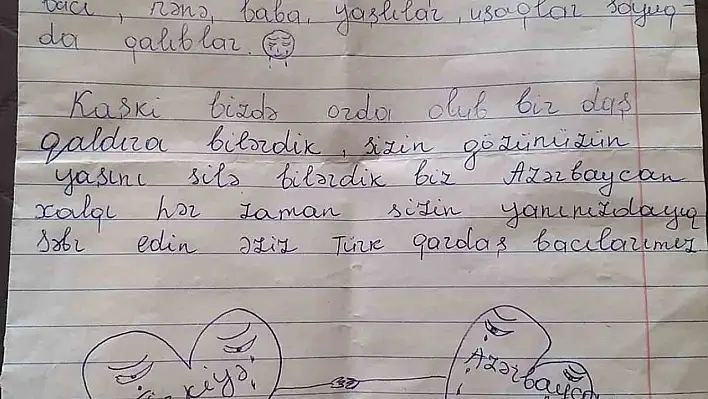 bacı, nənə, baba, yaşlılar, uşaqlar soyuq-
da qalıblar.
Kaşki bizdə orda olub bir daş
qaldıra bilərdik, sizin gözünüzün
yaşını silə bilərdik biz Azərbaycan
xalqı hər zaman sizin yanınızdayıq
səbr edin əziz Türk qardaş bacılarımız
Türkiyə,
Azərbayca